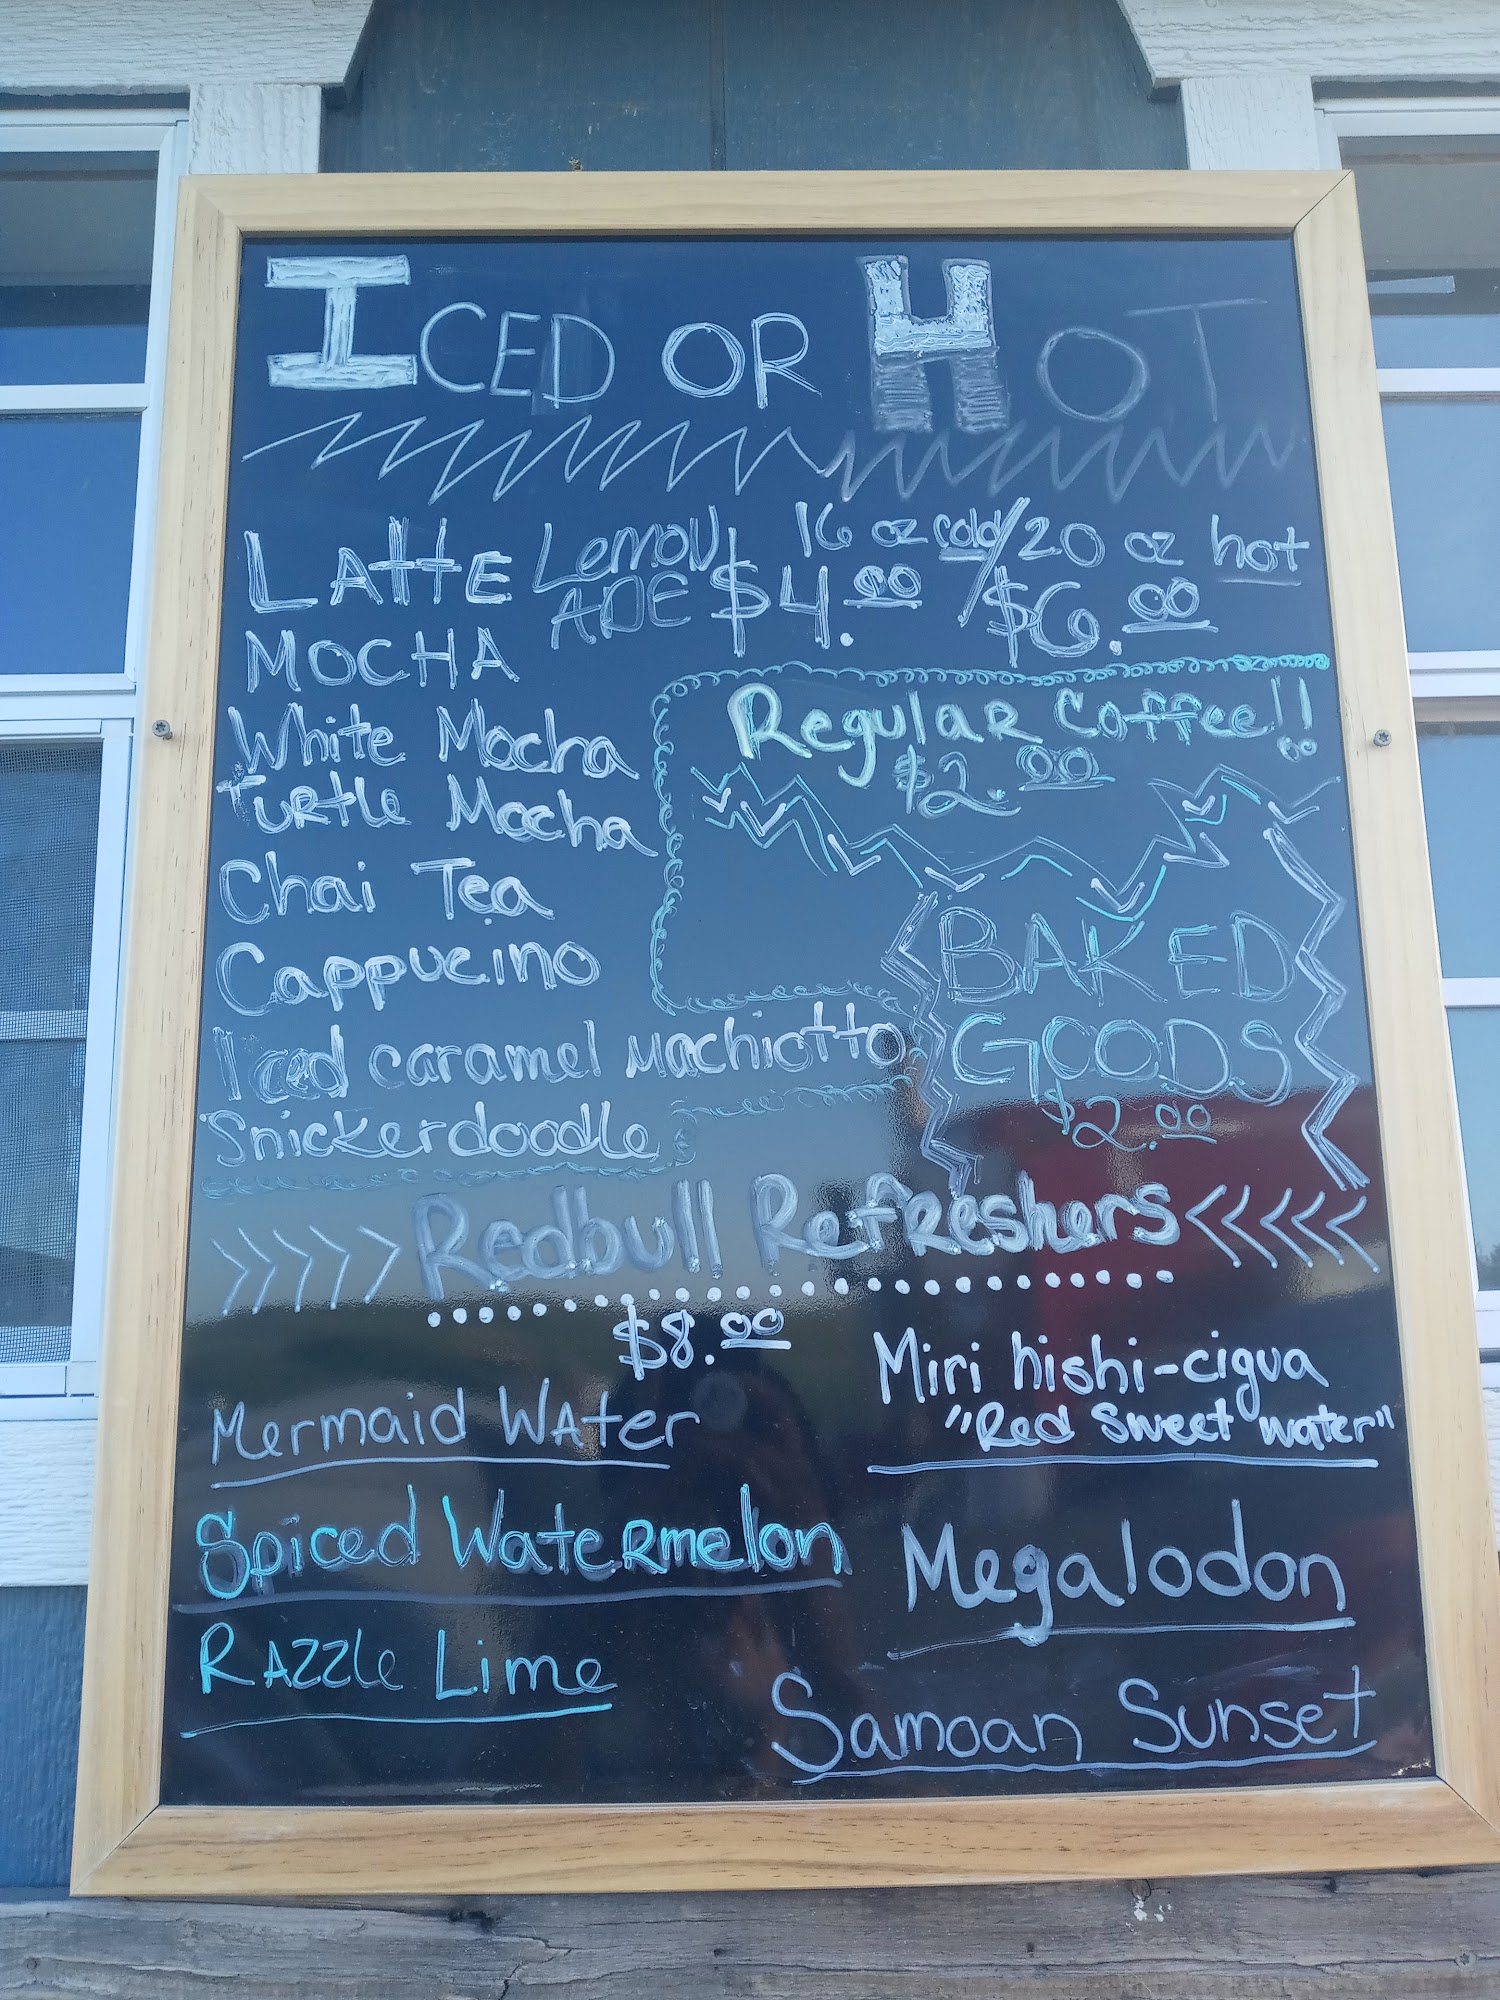 ICED OR HOT
LATTE
LEMON
ADE
16 oz cold/20 oz hot
$4.00/$6.00
MOCHA
White Mocha
Turtle Mocha
Chai Tea
Cappucino
Iced caramel Machiotto
Snickerdoodle
Regular Coffee!!
$2.00
BAKED
GOODS
$2.00
>>>>> Redbull Refreshers <<<<<
$8.00
Mermaid Water
Miri hishi-cigua
"Red Sweet Water"
Spiced Watermelon
Megalodon
Razzle Lime
Samoan Sunset